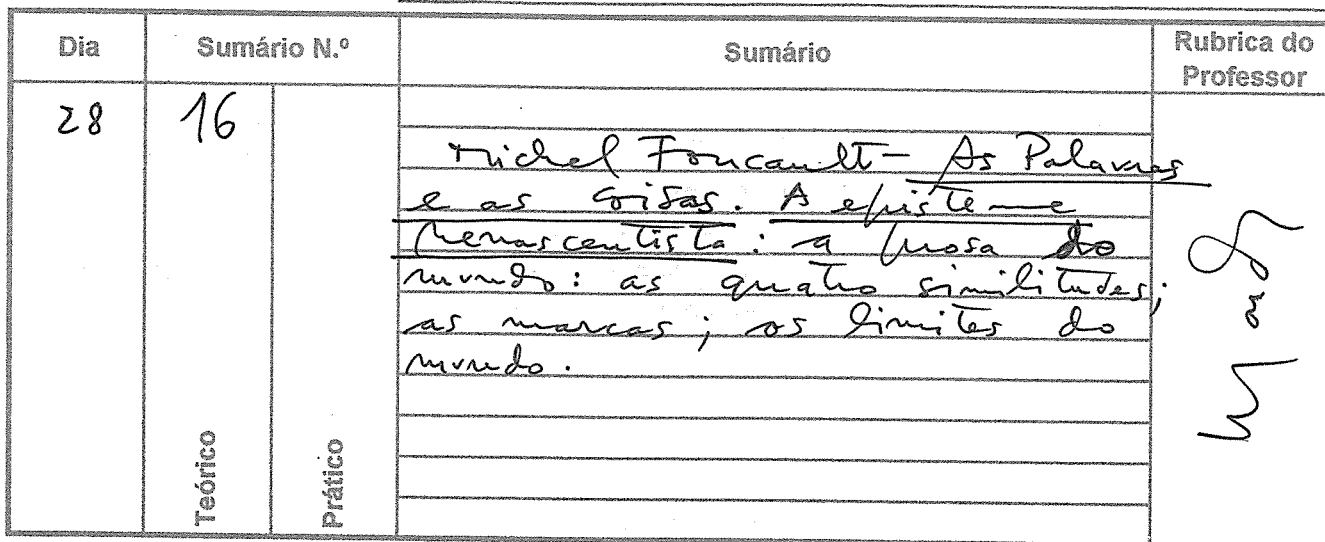 Dia Sumário N.º Sumário Rubrica do Professor
28 16
Michel Foucault - As Palavras
e as coisas. A episteme
renascentista: a prosa do
mundo: as quatro similitudes;
as marcas; os limites do
mundo.
Teórico
Prático